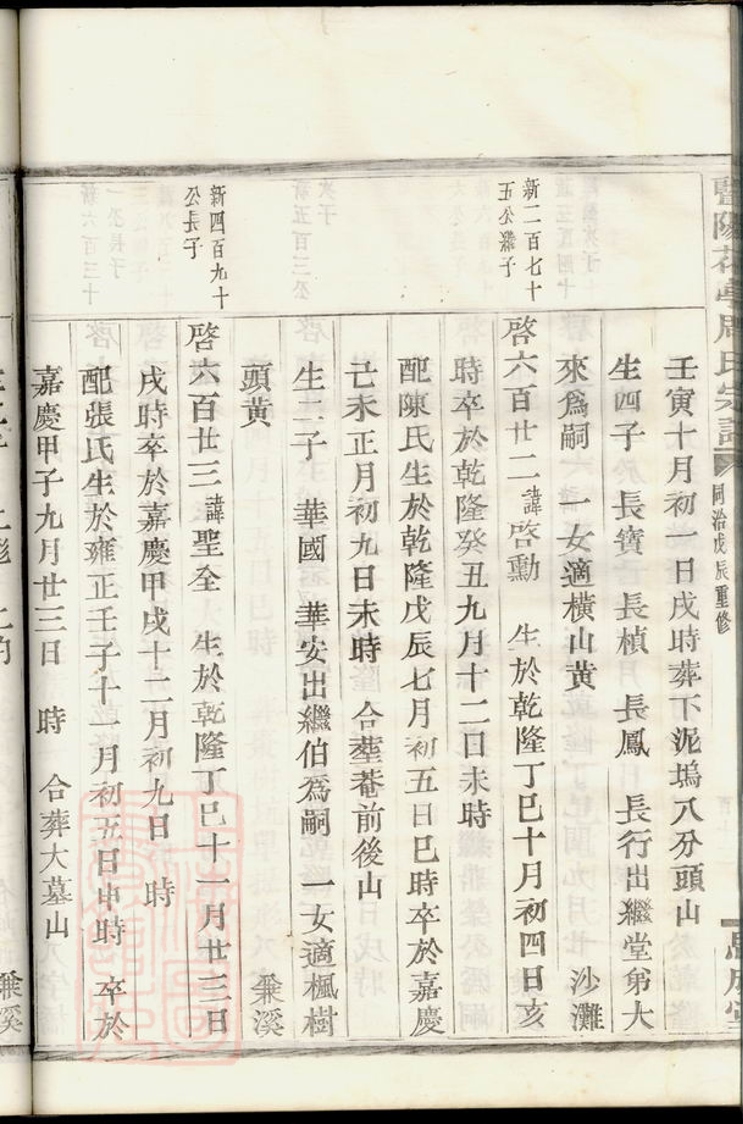 暨陽花亭周氏宗譜
同治戊辰重修
思成堂
壬寅十月初一日戌時葬下泥塢八分頭山
生四子 長寶 長楨 長鳳 長行出繼堂弟大
來爲嗣 一女適橫山黃 沙灘
新二百七十
五公繼子
啓六百廿二諱啓勳 生於乾隆丁巳十月初四日亥
時卒於乾隆癸丑九月十二日未時
配陳氏生於乾隆戊辰七月初五日巳時卒於嘉慶
己未正月初九日未時 合塟菴前後山
生二子 華國 華安出繼伯爲嗣 一女適楓樹
頭黃 兼溪
新四百九十
公長子
啓六百廿三諱聖全 生於乾隆丁巳十一月廿三日
戌時卒於嘉慶甲戌十二月初九日 時
配張氏生於雍正壬子十一月初五日申時 卒於
嘉慶甲子九月廿三日 時 合葬大墓山
兼溪